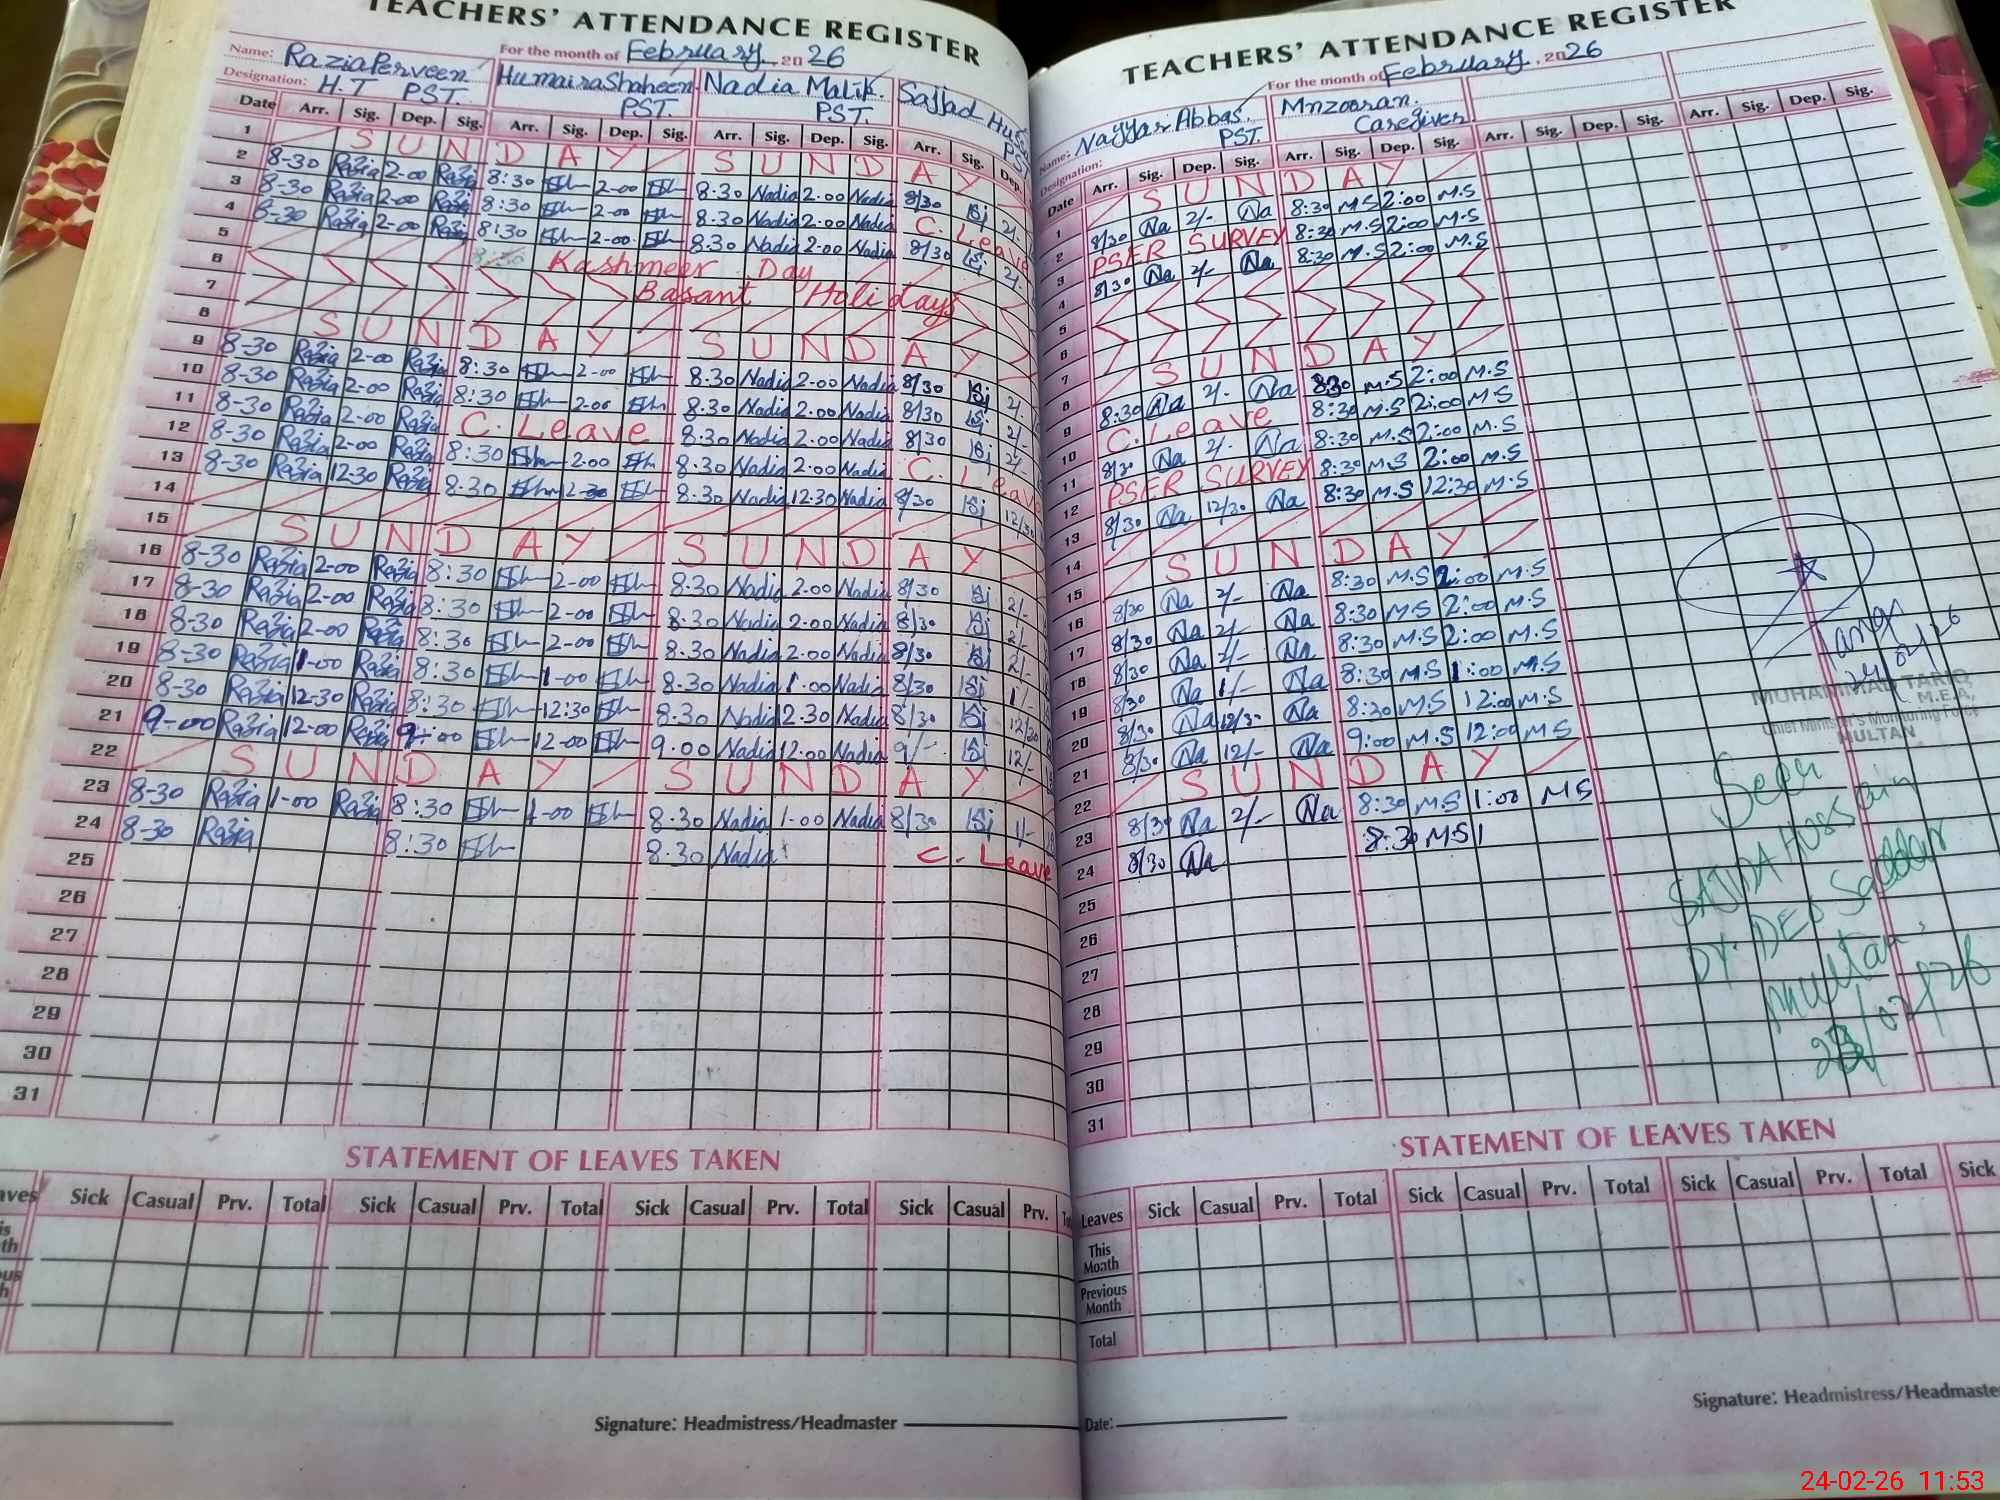 TEACHERS' ATTENDANCE REGISTER
Name: Razia Perveen For the month of February, 2026
Designation: H.T PST. Humaira Shaheen PST. Nadia Malik. PST. Sajjad
Date Arr. Sig. Dep. Sig. Arr. Sig. Dep. Sig. Arr. Sig. Dep. Sig. Arr. Sig. Dep.
1 S U N D A Y S U N D A Y
2 8-30 Razia 2-00 Razia 8:30 2-00 8:30 Nadia 2.00 Nadia 8/30 Sj 2/-
3 8-30 Razia 2-00 Razia 8:30 2-00 8.30 Nadia 2.00 Nadia C. Leave
4 8-30 Razia 2-00 Razia 8:30 2-00 8.30 Nadia 2.00 Nadia 8/30 Sj 2/-
5 Kashmeer Day
6 Basant Holidays
7
8 S U N D A Y S U N D A Y
9 8-30 Razia 2-00 Razia 8:30 2-00 8.30 Nadia 2.00 Nadia 8/30 Sj 2/-
10 8-30 Razia 2-00 Razia 8:30 2-00 8.30 Nadia 2.00 Nadia 8/30 Sj 2/-
11 8-30 Razia 2-00 Razia C. Leave 8.30 Nadia 2.00 Nadia 8/30 Sj 2/-
12 8-30 Razia 2-00 Razia 8:30 2-00 8.30 Nadia 2.00 Nadia C. Leave
13 8-30 Razia 12-30 Razia 8:30 12-30 8.30 Nadia 12.30 Nadia 8/30 Sj 12/30
14
15 S U N D A Y S U N D A Y
16 8-30 Razia 2-00 Razia 8:30 2-00 8.30 Nadia 2.00 Nadia 8/30 Sj 2/-
17 8-30 Razia 2-00 Razia 8:30 2-00 8.30 Nadia 2.00 Nadia 8/30 Sj 2/-
18 8-30 Razia 2-00 Razia 8:30 2-00 8.30 Nadia 2.00 Nadia 8/30 Sj 2/-
19 8-30 Razia 1-00 Razia 8:30 1-00 8.30 Nadia 1.00 Nadia 8/30 Sj 1/-
20 8-30 Razia 12-30 Razia 8:30 12:30 8.30 Nadia 12.30 Nadia 8/30 Sj 12/30
21 9-00 Razia 12-00 Razia 9:00 12-00 9.00 Nadia 12.00 Nadia 9/- Sj 12/-
22 S U N D A Y S U N D A Y
23 8-30 Razia 1-00 Razia 8:30 1-00 8.30 Nadia 1-00 Nadia 8/30 Sj 1/-
24 8-30 Razia 8:30 8.30 Nadia C. Leave
25
26
27
28
29
30
31
STATEMENT OF LEAVES TAKEN
Sick Casual Prv. Total Sick Casual Prv. Total Sick Casual Prv. Total Sick Casual Prv.
Signature: Headmistress/Headmaster
TEACHERS' ATTENDANCE REGISTER
For the month of February, 2026
Name: Nayyar Abbas. PST. Mnzooran. Caregiver
Designation:
Date Arr. Sig. Dep. Sig. Arr. Sig. Dep. Sig. Arr. Sig. Dep. Sig. Arr. Sig. Dep. Sig.
S U N D A Y
1 8/30 Na 2/- Na 8:30 M.S 2:00 M.S
2 PSER SURVEY 8:30 M.S 2:00 M.S
3 8/30 Na 2/- Na 8:30 M.S 2:00 M.S
4
5
6 S U N D A Y
7 8:30 Na 2/- Na 8:30 M.S 2:00 M.S
8 C. Leave 8:30 M.S 2:00 M.S
9 8/30 Na 2/- Na 8:30 M.S 2:00 M.S
10 PSER SURVEY 8:30 M.S 2:00 M.S
11 8/30 Na 12/30 Na 8:30 M.S 12:30 M.S
12
13 S U N D A Y
14 8/30 Na 2/- Na 8:30 M.S 2:00 M.S
15 8/30 Na 2/- Na 8:30 M.S 2:00 M.S
16 8/30 Na 2/- Na 8:30 M.S 2:00 M.S
17 8/30 Na 1/- Na 8:30 M.S 1:00 M.S
18 8/30 Na 12/30 Na 8:30 M.S 12:00 M.S
19 8/30 Na 12/- Na 9:00 M.S 12:00 M.S
20
21 S U N D A Y
22 8/30 Na 2/- Na 8:30 M.S 1:00 M.S
23 8/30 Na 8:30 M.S
24
25
26
27
28
29
30
31
24/02/26
MUHAMMAD TARIQ
M.E.A,
Chief Minister's Monitoring Force
MULTAN
Seen
SAJIDA HUSSAIN
DY. DEO Saddar
Multan.
23/02/26
STATEMENT OF LEAVES TAKEN
Leaves Sick Casual Prv. Total Sick Casual Prv. Total Sick Casual Prv. Total Sick
This Month
Previous Month
Total
Signature: Headmistress/Headmaster
Date:
24-02-26 11:53